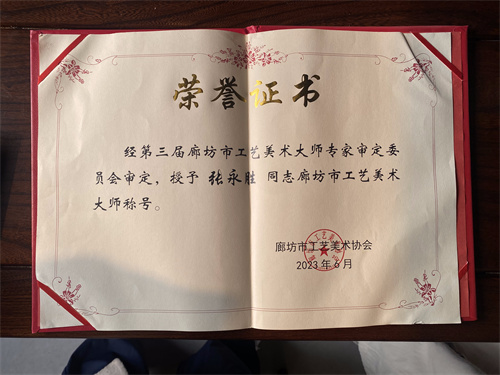 荣誉证书
经第三届廊坊市工艺美术大师专家审定委
员会审定，授予 张永胜 同志廊坊市工艺美术
大师称号。
廊坊市工艺美术协会
2023年6月